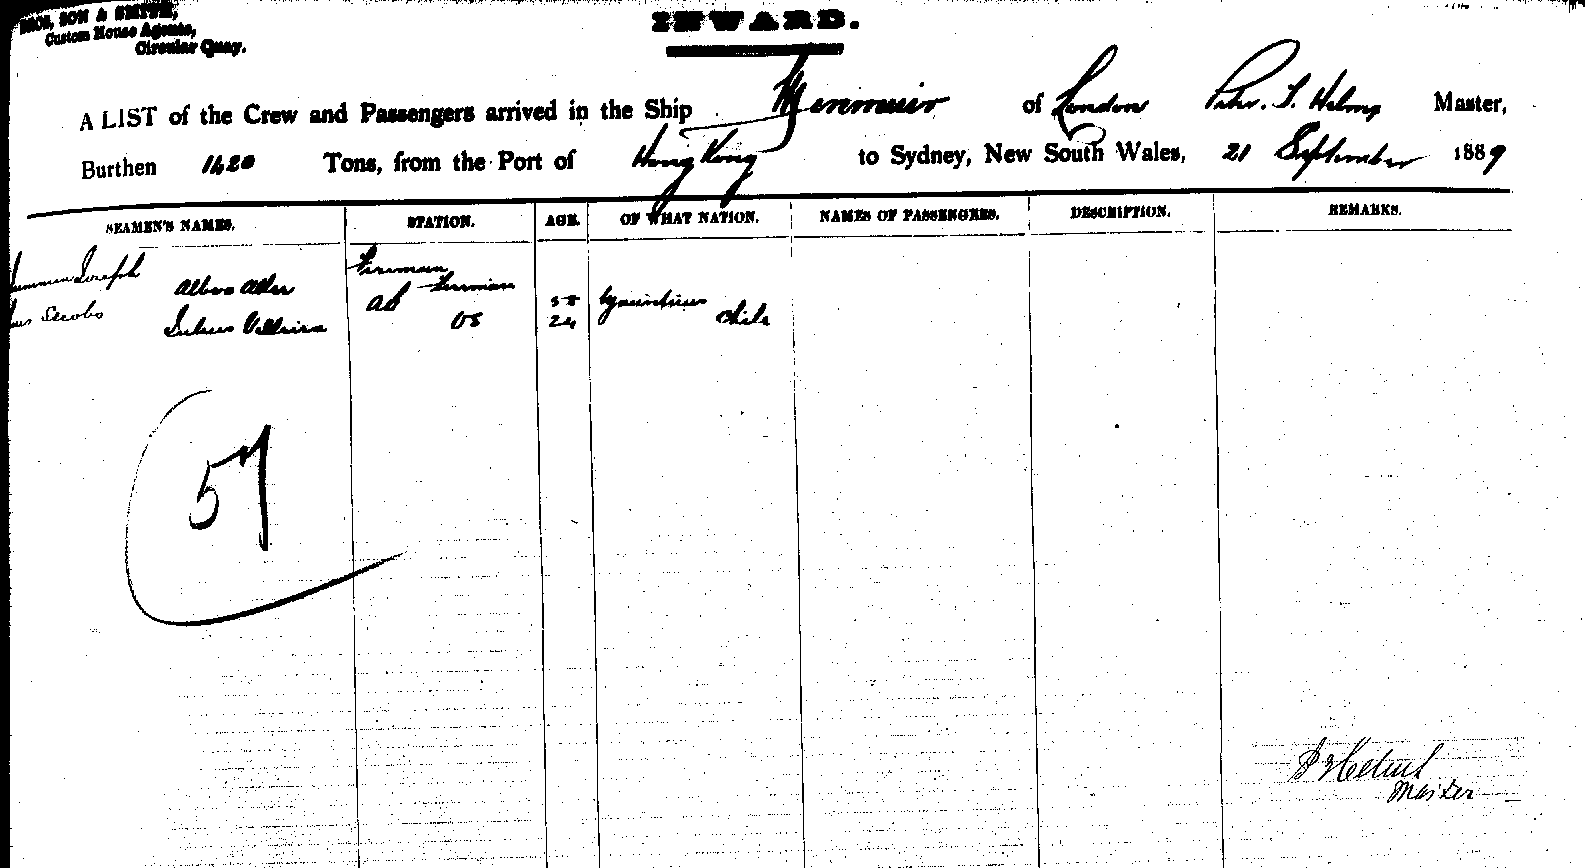 SON & SMITH,
Custom House Agents,
Circular Quay.
INWARD.
A LIST of the Crew and Passengers arrived in the Ship Menmuir of London Peter. T. Helms Master,
Burthen 1420 Tons, from the Port of Hong Kong to Sydney, New South Wales, 21 September 1889
SEAMEN'S NAMES. STATION. AGE. OF WHAT NATION. NAMES OF PASSENGERS. DESCRIPTION. REMARKS.
Joseph Fireman
Fireman
Jacobs AB
OS 24 Chile
57
Master